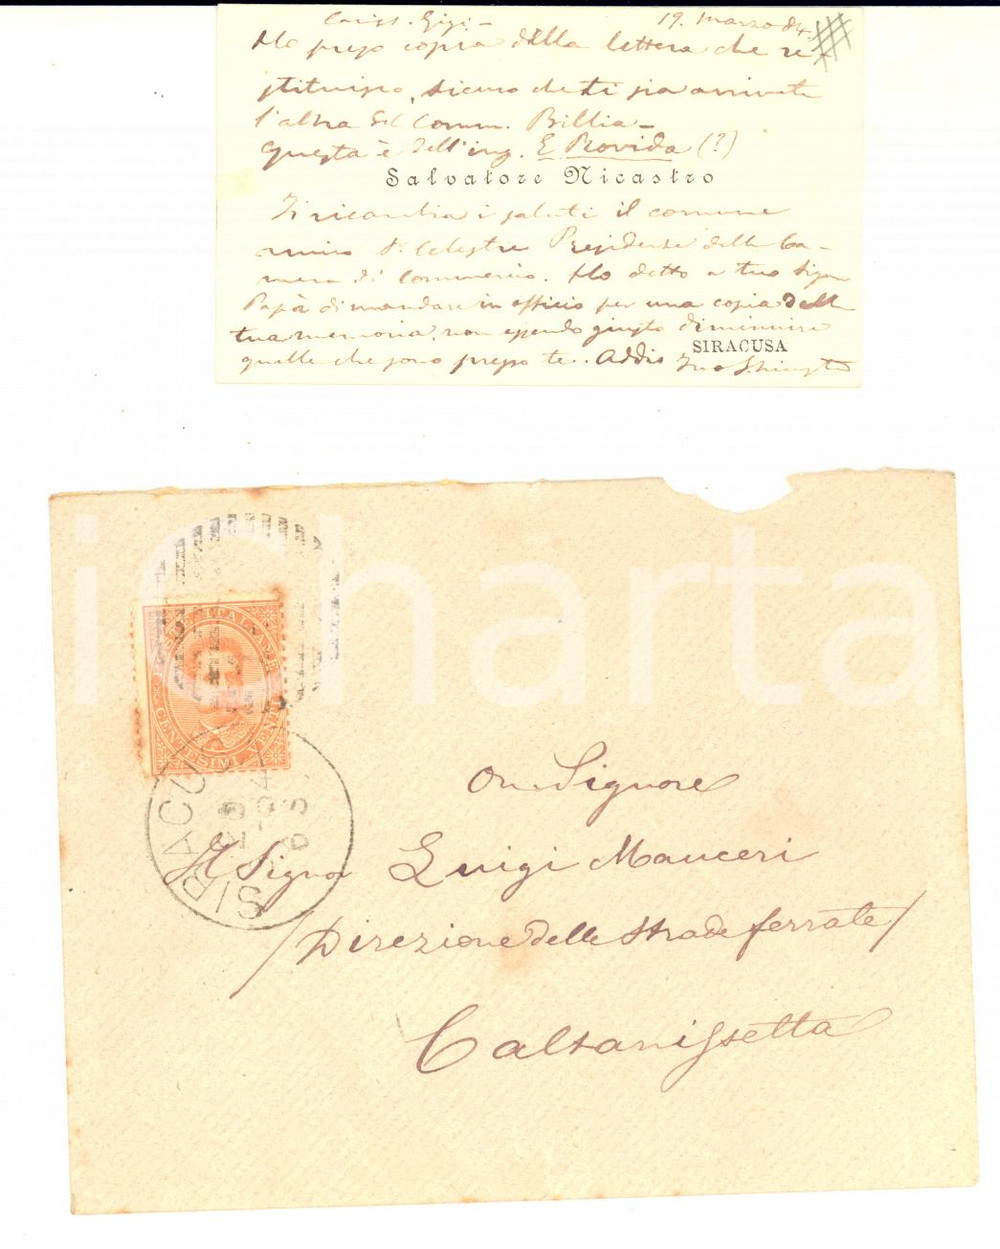 Cariss. Gigi – 19. Marzo 84.
Ho preso copia della lettera che re-
stituisco, sicuro che ti sia arrivata
l'altra del Comm. Billia –
Questa è dell'ing. E. Rovida (?)
Salvatore Nicastro
Ti ricambia i saluti il comune
amico Celestre Presidente della Ca-
mera di Commercio. Ho detto a tuo Signor
Papà di mandare in officio per una copia della
tua memoria, non essendo giusto diminuire
SIRACUSA
quelle che sono presso te. Addio
iCharta
POSTE ITALIANE
CENTESIMI VENTI
SIRACUSA
On. Signore
Il Signor Luigi Mauceri
/Direzione delle Strade ferrate/
Caltanissetta